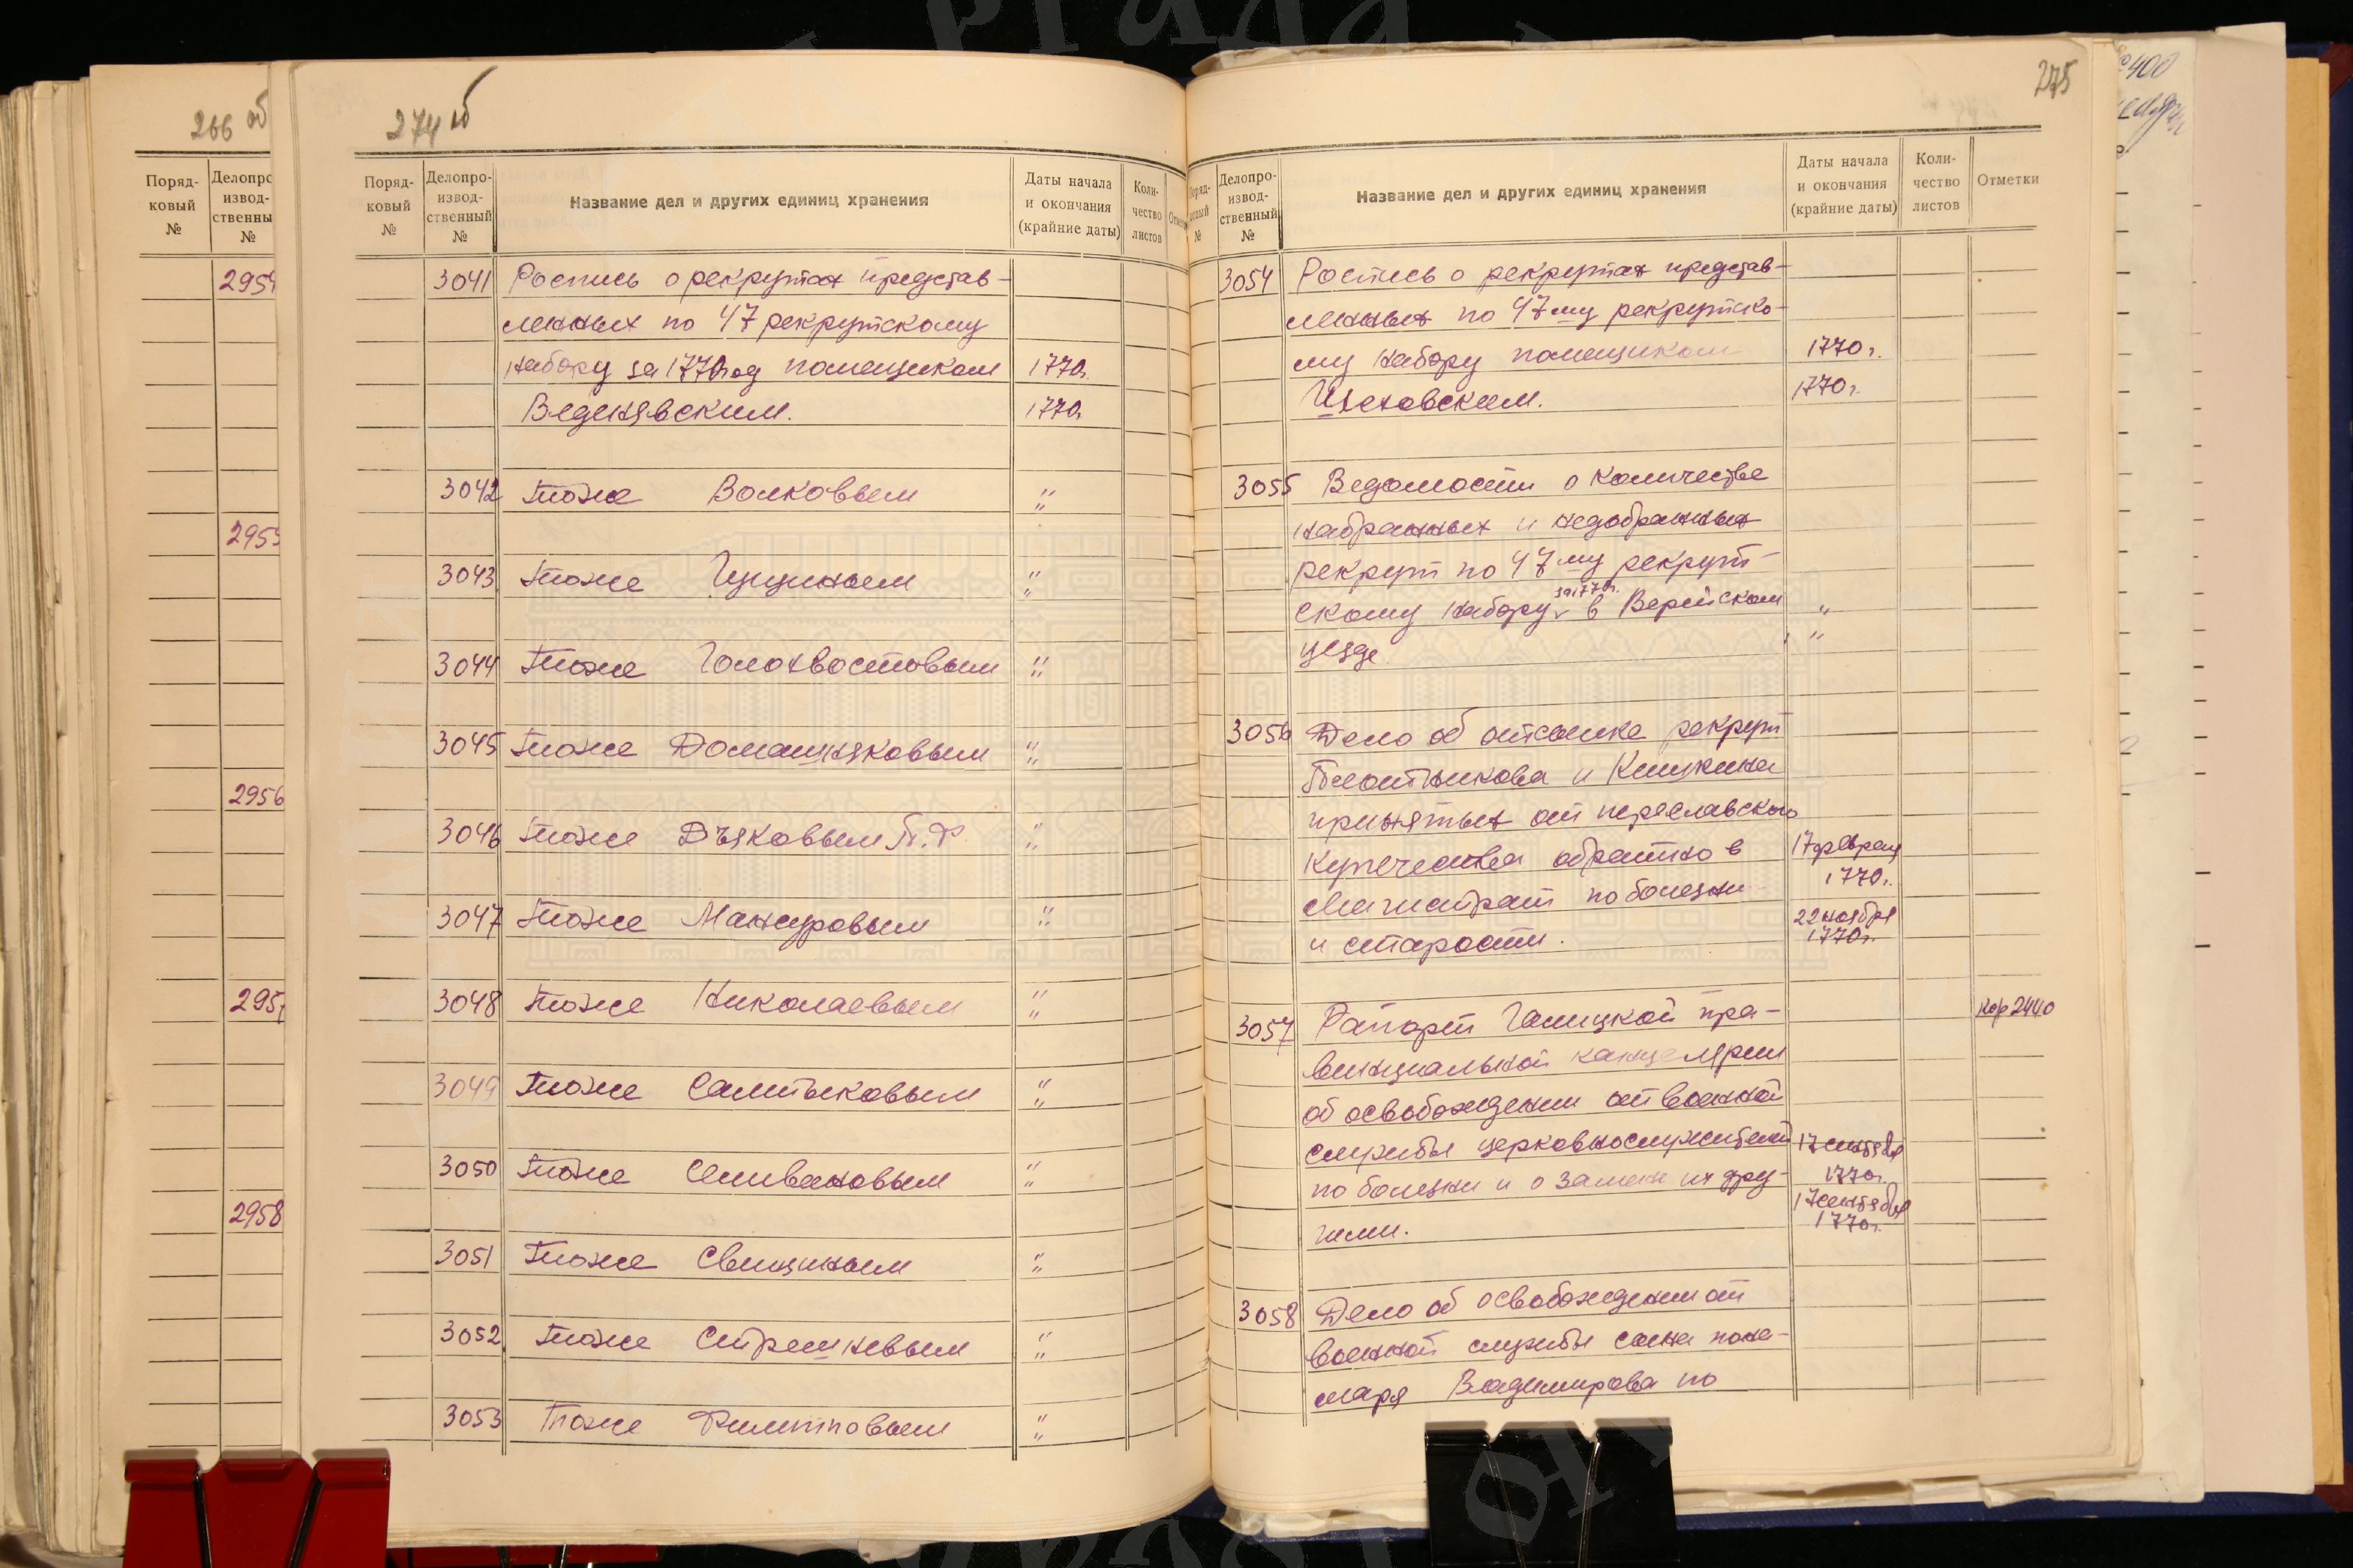 266 об
Поряд-
ковый
№
Делопро
извод-
ственны
№
2954
2955
2956
295
2958
274 об
Поряд-
ковый
№
Делопро-
извод-
ственный
№
Название дел и других единиц хранения
Даты начала
и окончания
(крайние даты)
Коли-
чество
листов
3041 Роспись о рекрутах представ-
ленных по 47 рекрутскому
набору за 1770 год помещиком 1770г.
Веденявским. 1770г.
3042 Тоже Волковым "
"
3043 Тоже "
"
3044 Тоже Голохвостовым "
"
3045 Тоже Домашняковым "
"
3046 Тоже Дъяковым П.Ф. "
"
3047 Тоже Мансуровым "
"
3048 Тоже Николаевым "
"
3049 Тоже Салтыковым "
"
3050 Тоже Селивановым "
"
3051 Тоже Свищиным "
"
3052 Тоже Стрешневым "
"
3053 Тоже Филипповым "
"
275
Поряд-
ковый
№
Делопро-
извод-
ственный
№
Название дел и других единиц хранения
Даты начала
и окончания
(крайние даты)
Коли-
чество
листов
Отметки
3054 Роспись о рекрутах представ-
ленных по 47му рекрутско-
му набору помещиком 1770г.
1770г.
3055 Ведомости о количестве
набранных и недобранных
рекрут по 47му рекрут-
скому набору за 1770г. в Верейском "
уезде "
3056 Дело об отсылке рекрут
Плотникова и Кишкина
принятых от переславского
купечества обратно в 17 февраля
магистрат по болезни 1770г.
и старости. 22 ноября
1770г.
3057 Рапорт Галицкой про-
винциальной канцелярии
об освобождении от военной
службы церковнослужителей 17 сентября
по болезни и о замене их дру- 1770г.
гими. 17 сентября
1770г.
2440
3058 Дело об освобождении от
военной службы сына поно-
маря Владимирова по
№400